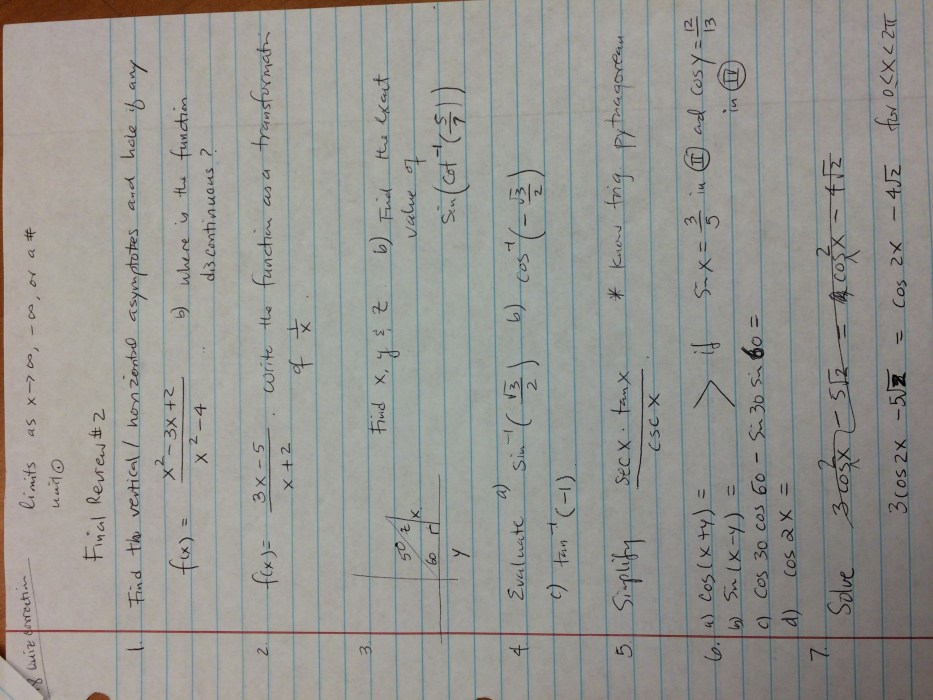 Quiz correction
limits as x→∞, -∞, or a #
unit ⊙
Final Review #2
1. Find the vertical / horizontal asymptotes and hole if any
f(x) = (x² - 3x + 2)/(x² - 4) b) where is the function
discontinuous?
2. f(x) = (3x - 5)/(x + 2). write the function as a transformati
of 1/x.
3. Find x, y & z b) Find the exact
value of
50 z x
60
y
sin(cot⁻¹(5/7))
4 Evaluate a) sin⁻¹(√3/2) b) cos⁻¹(-√3/2)
c) tan⁻¹(-1)
5. Simplify (sec x · tan x)/(csc x). * know trig pythagorean
6. a) cos(x+y) = > if sin x = 3/5 in II and cos y = 12/13
b) sin(x-y) = in IV
c) cos 30 cos 60 - sin 30 sin 60 =
d) cos 2x =
7. Solve 3cos²x - 5√2 = cos²x - 4√2
3cos2x - 5√2 = cos 2x - 4√2 for 0≤x<2π